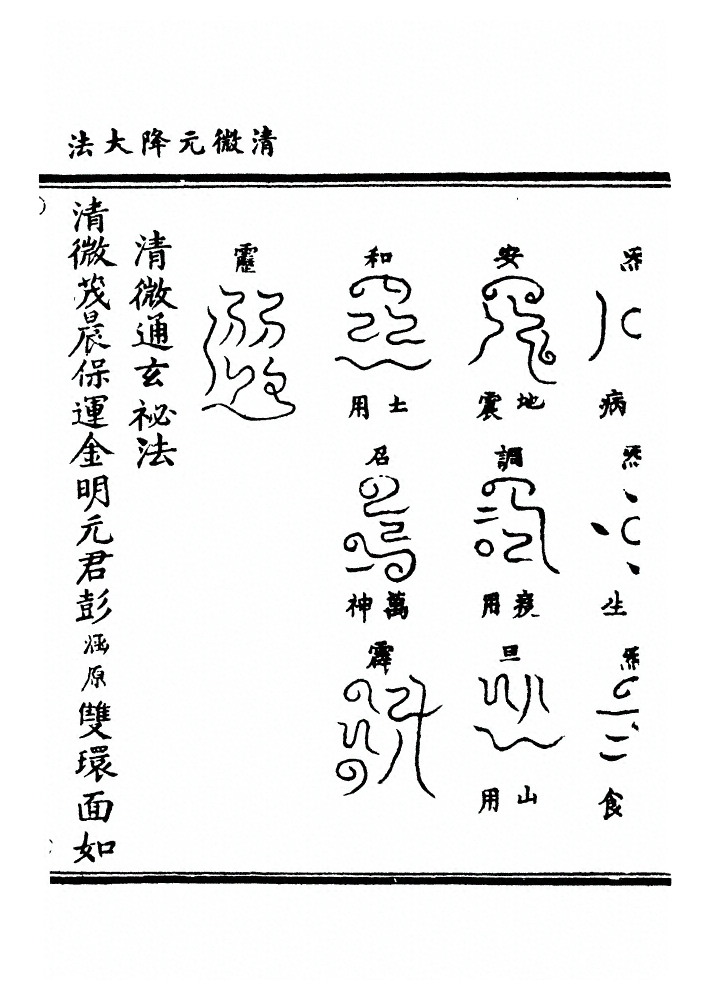 清微元降大法
炁
病
炁
生
炁
食
安
地震
調
疫用
旦
山用
和
土用
召
萬神
霹
靂
清微通玄祕法
清微茂晨保運金明元君彭
原
雙環面如